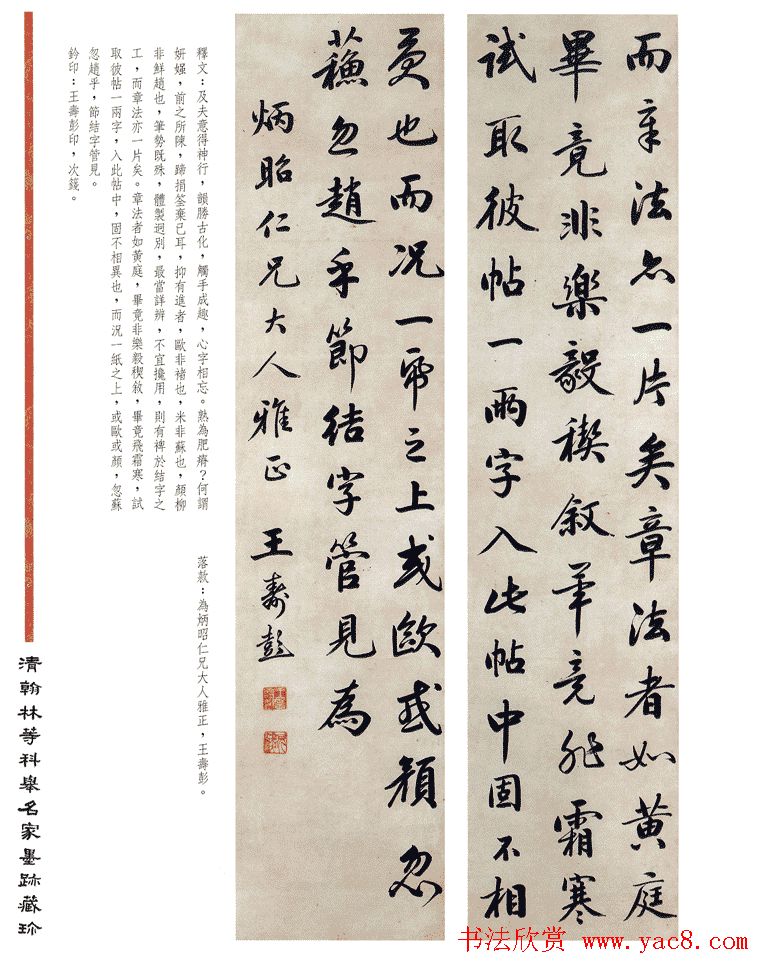 而章法亦一片矣章法者如黄庭
畢竟非樂毅禊叙畢竟非霜寒
試取彼帖一兩字入此帖中固不相
矣也而况一帋之上或歐或顔忽
蘓忽趙乎節結字管見為
炳昭仁兄大人雅正 王壽彭
釋文：及夫意得神行，韻勝古化，觸手成趣，心字相忘。熟為肥瘠？何謂
妍媸，前之所陳，蹄捐筌棄已耳，抑有進者，歐非褚也，米非蘇也，顏柳
非鮮趙也，筆勢既殊，體製迥別，最當詳辨，不宜攙用，則有裨於結字之
工，而章法亦一片矣。章法者如黃庭，畢竟非樂毅稧敘，畢竟飛霜寒，試
取彼帖一兩字，入此帖中，固不相異也，而況一紙之上，或歐或顏，忽蘇
忽趙乎，節結字管見。
鈐印：王壽彭印，次籛。
落款：為炳昭仁兄大人雅正，王壽彭。
清翰林等科舉名家墨跡藏珍
书法欣赏 www.yac8.com